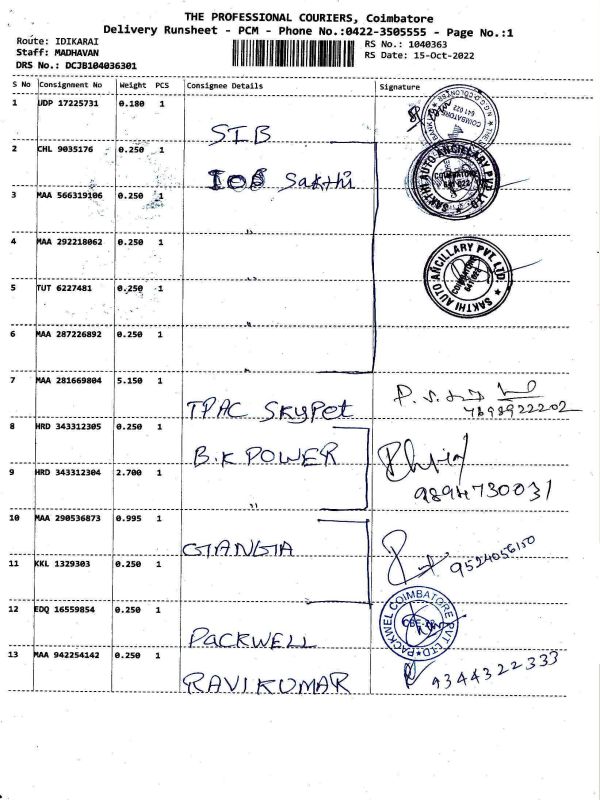 THE PROFESSIONAL COURIERS, Coimbatore
Delivery Runsheet - PCM - Phone No.:0422-3505555 - Page No.:1
Route: IDIKARAI
RS No.: 1040363
Staff: MADHAVAN
RS Date: 15-Oct-2022
DRS No.: DCJB104036301
S No Consignment No Weight PCS Consignee Details Signature
1 UDP 17225731 0.180 1
SIB
COIMBATORE
641 022
2 CHL 9035176 0.250 1
Sakthi
SAKTHI AUTO ANCILLARY PVT. LTD.
COIMBATORE
641 022
3 MAA 566319106 0.250 1
"
4 MAA 292218062 0.250 1
"
SAKTHI AUTO ANCILLARY PVT. LTD.
COIMBATORE
641 022
5 TUT 6227481 0.250 1
"
6 MAA 287226892 0.250 1
7 MAA 281669804 5.150 1
TPAC SKYPet
7898922202
8 HRD 343312305 0.250 1
B.K POWER
9 HRD 343312304 2.700 1
"
9894730031
10 MAA 290536873 0.995 1
GANGA
9524056150
11 KKL 1329303 0.250 1
12 EDQ 16559854 0.250 1
PACKWELL
PACKWEL COIMBATORE PVT LTD
13 MAA 942254142 0.250 1
RAVIKUMAR
9344322333